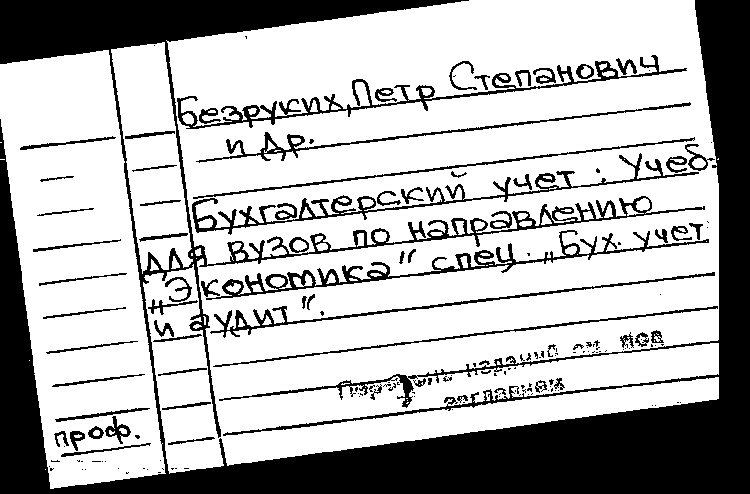 Безруких, Петр Степанович
и др.
Бухгалтерский учет : Учеб.
для вузов по направлению
„Экономика" спец. „Бух. учет
и аудит".
Перечень изданий см. под
заглавием
проф.